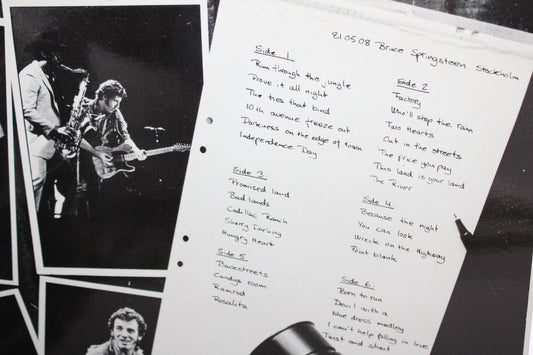 81.05.08 Bruce Springsteen Stockholm
Side 1.
Run through the jungle
Prove it all night
The ties that bind
10th avenue freeze out
Darkness on the edge of town
Independence Day
Side 2
Factory
Who'll stop the rain
Two Hearts
Out in the streets
The price you pay
This land is your land
The River
Side 3.
Promised land
Bad lands
Cadillac Ranch
Sherry Darling
Hungry Heart
Side 4.
Because the night
You can look
Wreck on the Highway
Point blank
Side 5
Backstreets
Candys room
Ramrod
Rosalita
Side 6.
Born to run
Devil with a
blue dress medley
I can't help falling in love
Twist and shout